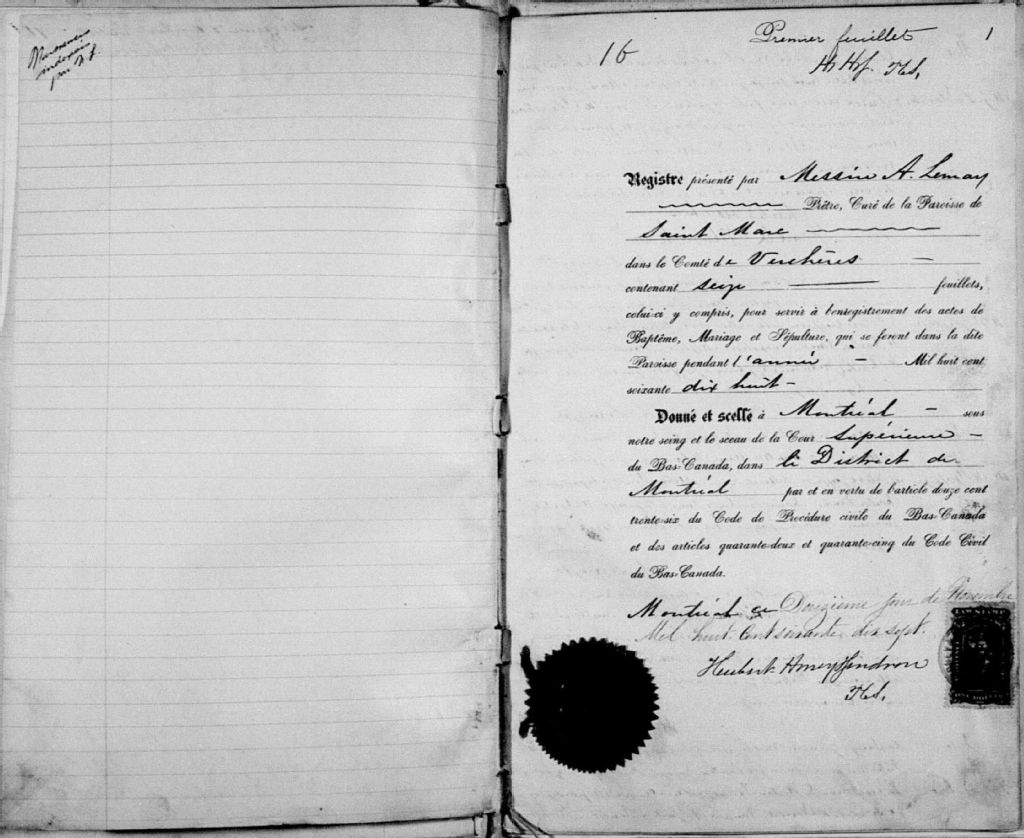 par
16
Premier feuillet
1
Registre présenté par Messire A. Lemay
Prêtre, Curé de la Paroisse de
Saint Marc
dans le Comté de Verchères
contenant seize feuillets,
celui-ci y compris, pour servir à l'enregistrement des actes de
Baptême, Mariage et Sépulture, qui se feront dans la dite
Paroisse pendant l'année Mil huit cent
soixante dix huit
Donné et scellé à Montréal sous
notre seing et le sceau de la Cour Supérieure
du Bas-Canada, dans le District de
Montréal par et en vertu de l'article douze cent
trente-six du Code de Procédure civile du Bas-Canada
et des articles quarante-deux et quarante-cinq du Code Civil
du Bas-Canada.
Montréal ce Douzième jour de Novembre
Mil huit Cent soixante dix sept.
LAW STAMP
ONE DOLLAR